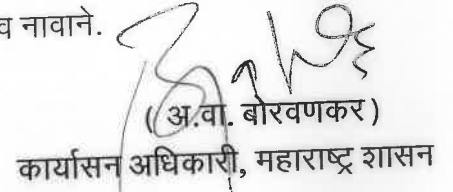 व नावाने.
( अ.वा. बोरवणकर )
कार्यासन अधिकारी, महाराष्ट्र शासन